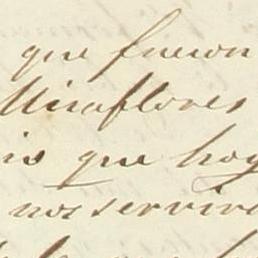 que fueron
Miraflores
que hoy
nos servir